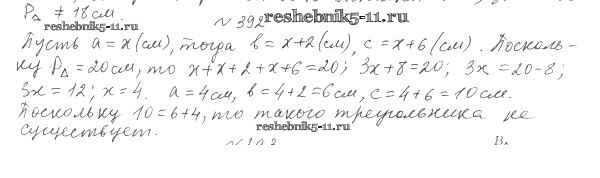 P△ ≠ 18 см.
reshebnik5-11.ru
№ 392
reshebnik5-11.ru
Пусть a = x (см), тогда b = x+2 (см), c = x+6 (см). Посколь-
ку P△ = 20 см, то x+x+2+x+6=20; 3x+8=20; 3x = 20-8;
3x = 12; x = 4. a = 4 см, b = 4+2=6 см, c = 4+6 = 10 см.
Поскольку 10 = 6+4, то такого треугольника не
существует.
reshebnik5-11.ru